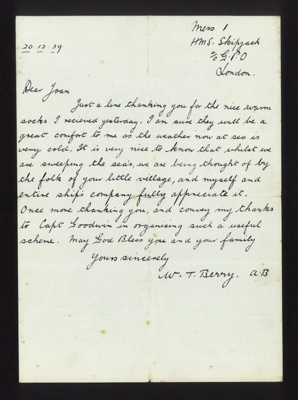 Mess 1
20 12 39
HMS. Skipjack
c/o G P O
London.
Dear Joan
Just a line thanking you for the nice warm
socks I recieved yesterday. I am sure they will be a
great comfort to me as the weather now at sea is
very cold. It is very nice to know that whilst we
are sweeping the sea's, we are being thought of by
the folk of your little village, and myself and
entire ship's company fully appreciate it.
Once more thanking you, and convey my thanks
to Capt Goodwin in organising such a useful
scheme. May God Bless you and your family
Yours sincerely
W. T. Berry. A.B